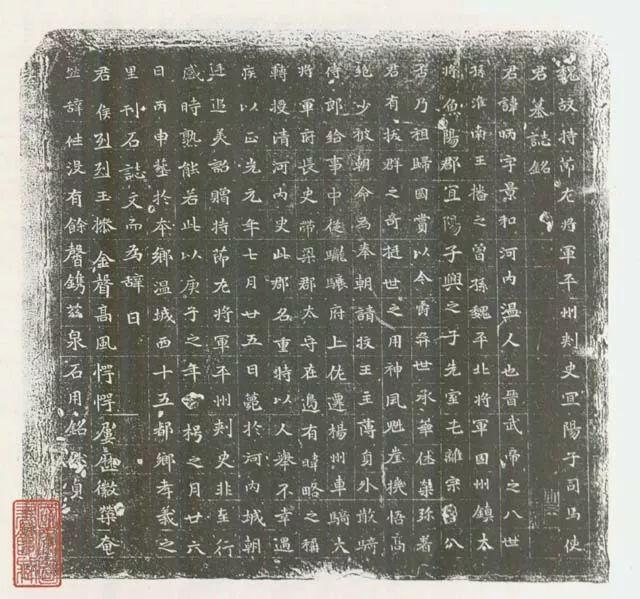 魏故持節左將軍平州刾史宜陽子司馬使
君墓誌銘
君諱昞字景和河內温人也晉武帝之八世
孫淮南王播之曾孫魏平北將軍固州鎮大
將魚陽郡宜陽子興之子先室屯離宗曾公
否乃祖歸國賞以今爵弈世承華休榮弥著
君有拔群之奇挺世之用神風魁崖機悟高
絕少被朝命為奉朝請牧王主薄員外散騎
侍郎給事中從驤驤府上佐遷楊州車騎大
將軍府長史帶梁郡太守在邊有暐略之稱
轉授清河內史此郡名重特以人舉不幸遇
疾以正光元年七月廿五日薨於河內城朝
廷追美詔贈持節左將軍平州刾史非至行
感時熟能若此以庚子之年玄枵之月廿六
日丙申塟於本鄉温城西十五都鄉孝義之
里刊石誌文而為辞曰
君侯烈烈玉操金聲高風愕愕屢歷徽榮奄
辞往没有餘馨鐫茲泉石用銘休貞